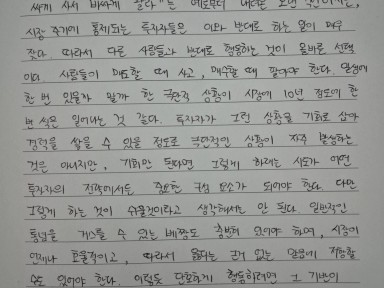 싸게 사서 비싸게 팔라"는 예로부터 내려온
시장 주기에 통제되는 투자자들은 이와 반대로 하는 일이 매우
잦다. 따라서 다른 사람들과 반대로 행동하는 것이 올바른 선택
이다. 사람들이 매도할 때 사고, 매수할 때 팔아야 한다. 일생에
한 번 있을까 말까 한 극단적 상황이 시장에 10년 정도에 한
번 씩은 일어나는 것 같다. 투자자가 그런 상황을 기회로 삼아
경력을 쌓을 수 있을 정도로 극단적인 상황이 자주 발생하는
것은 아니지만, 기회만 된다면 그렇게 하려는 시도가 어떤
투자자의 전략에서든 중요한 구성 요소가 되어야 한다. 다만
그렇게 하는 것이 쉬울것이라고 생각해서는 안 된다. 일반적인
통념을 거스를 수 있는 배짱도 충분히 있어야 하며, 시장이
언제나 효율적이고, 따라서 옳다는 근거 없는 믿음에 저항할
수도 있어야 한다. 이렇듯 단호하게 행동하려면 그 기반이